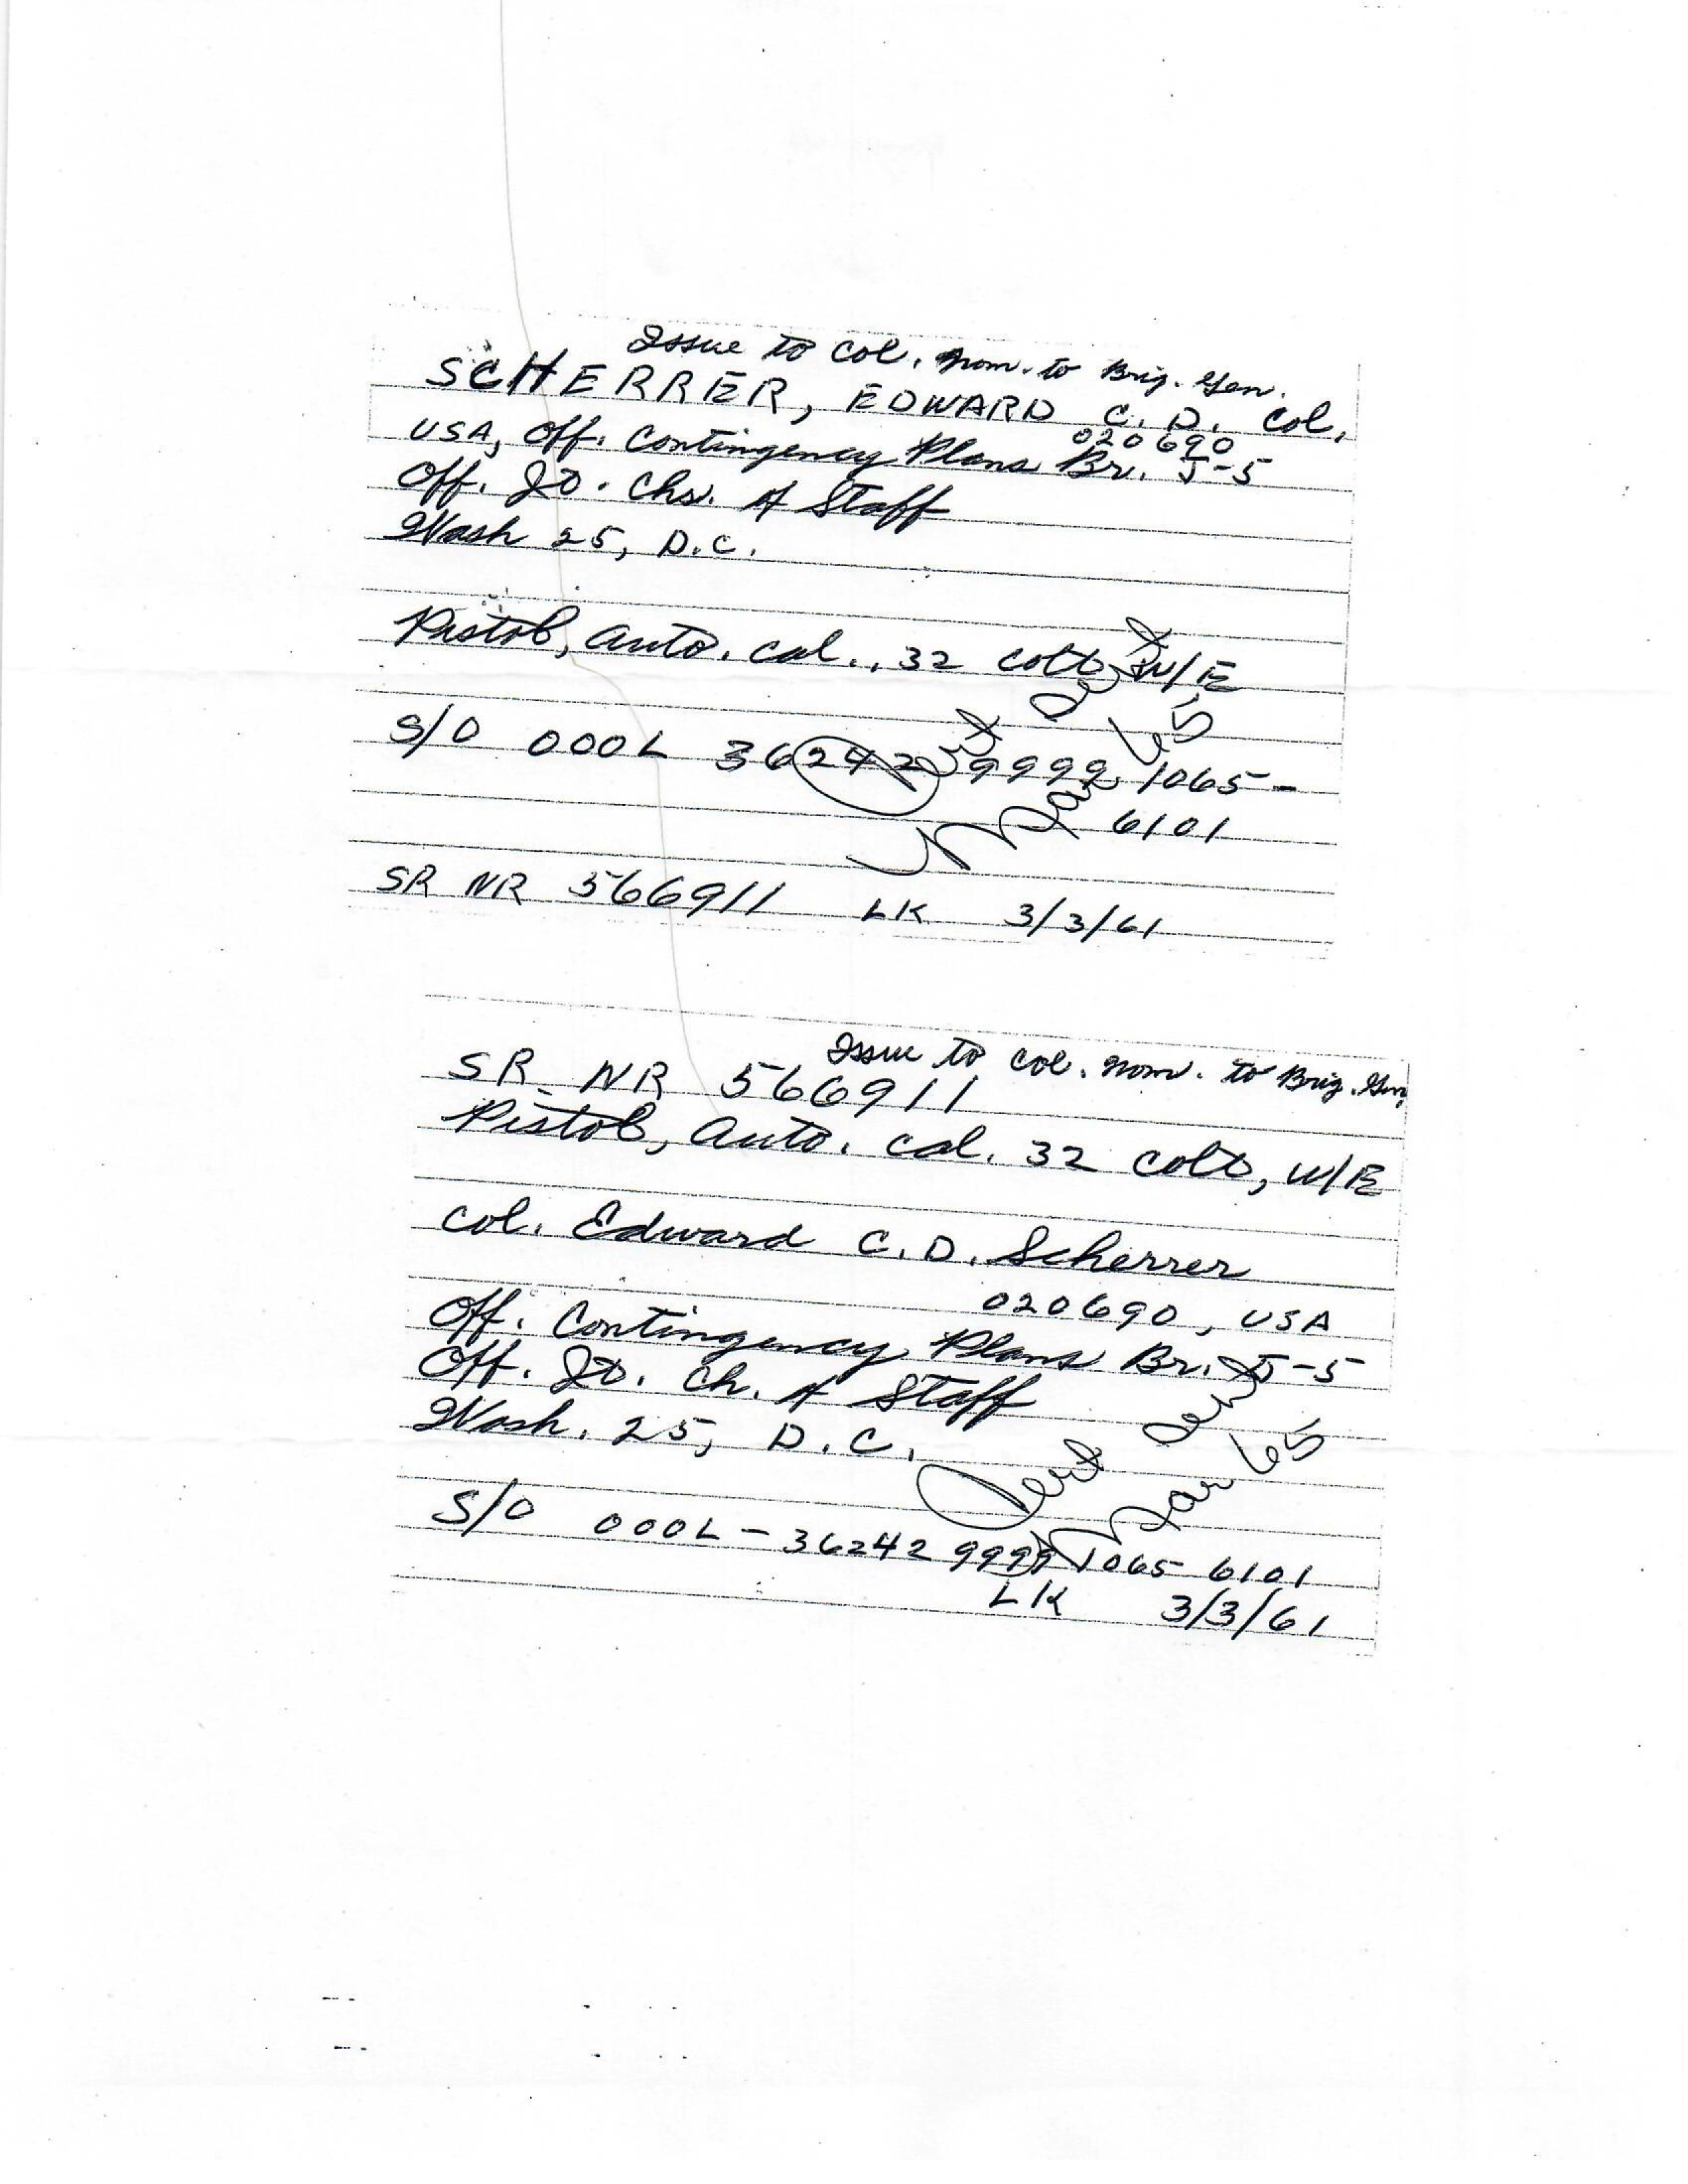 Issue to Col. nom. to Brig. Gen.
SCHERRER, EDWARD C. D. Col,
020690
USA, Off. Contingency Plans Br. J-5
Off. Jt. Chs. of Staff
Wash 25, D.C.
Pistol, Auto. cal. .32 colt W/E
S/O 000L 36242 9999 1065-
6101
Cert Sent
Mar 65
SR NR 566911 LK 3/3/61
Issue to Col. nom. to Brig. Gen,
SR NR 566911
Pistol, Auto. cal. 32 colt, W/E
Col. Edward C. D. Scherrer
020690, USA
Off. Contingency Plans Br. J-5
Off. Jt. Ch. of Staff
Wash. 25, D.C.
Cert Sent
Mar 65
S/O 000L-36242 9999 1065 6101
LK 3/3/61